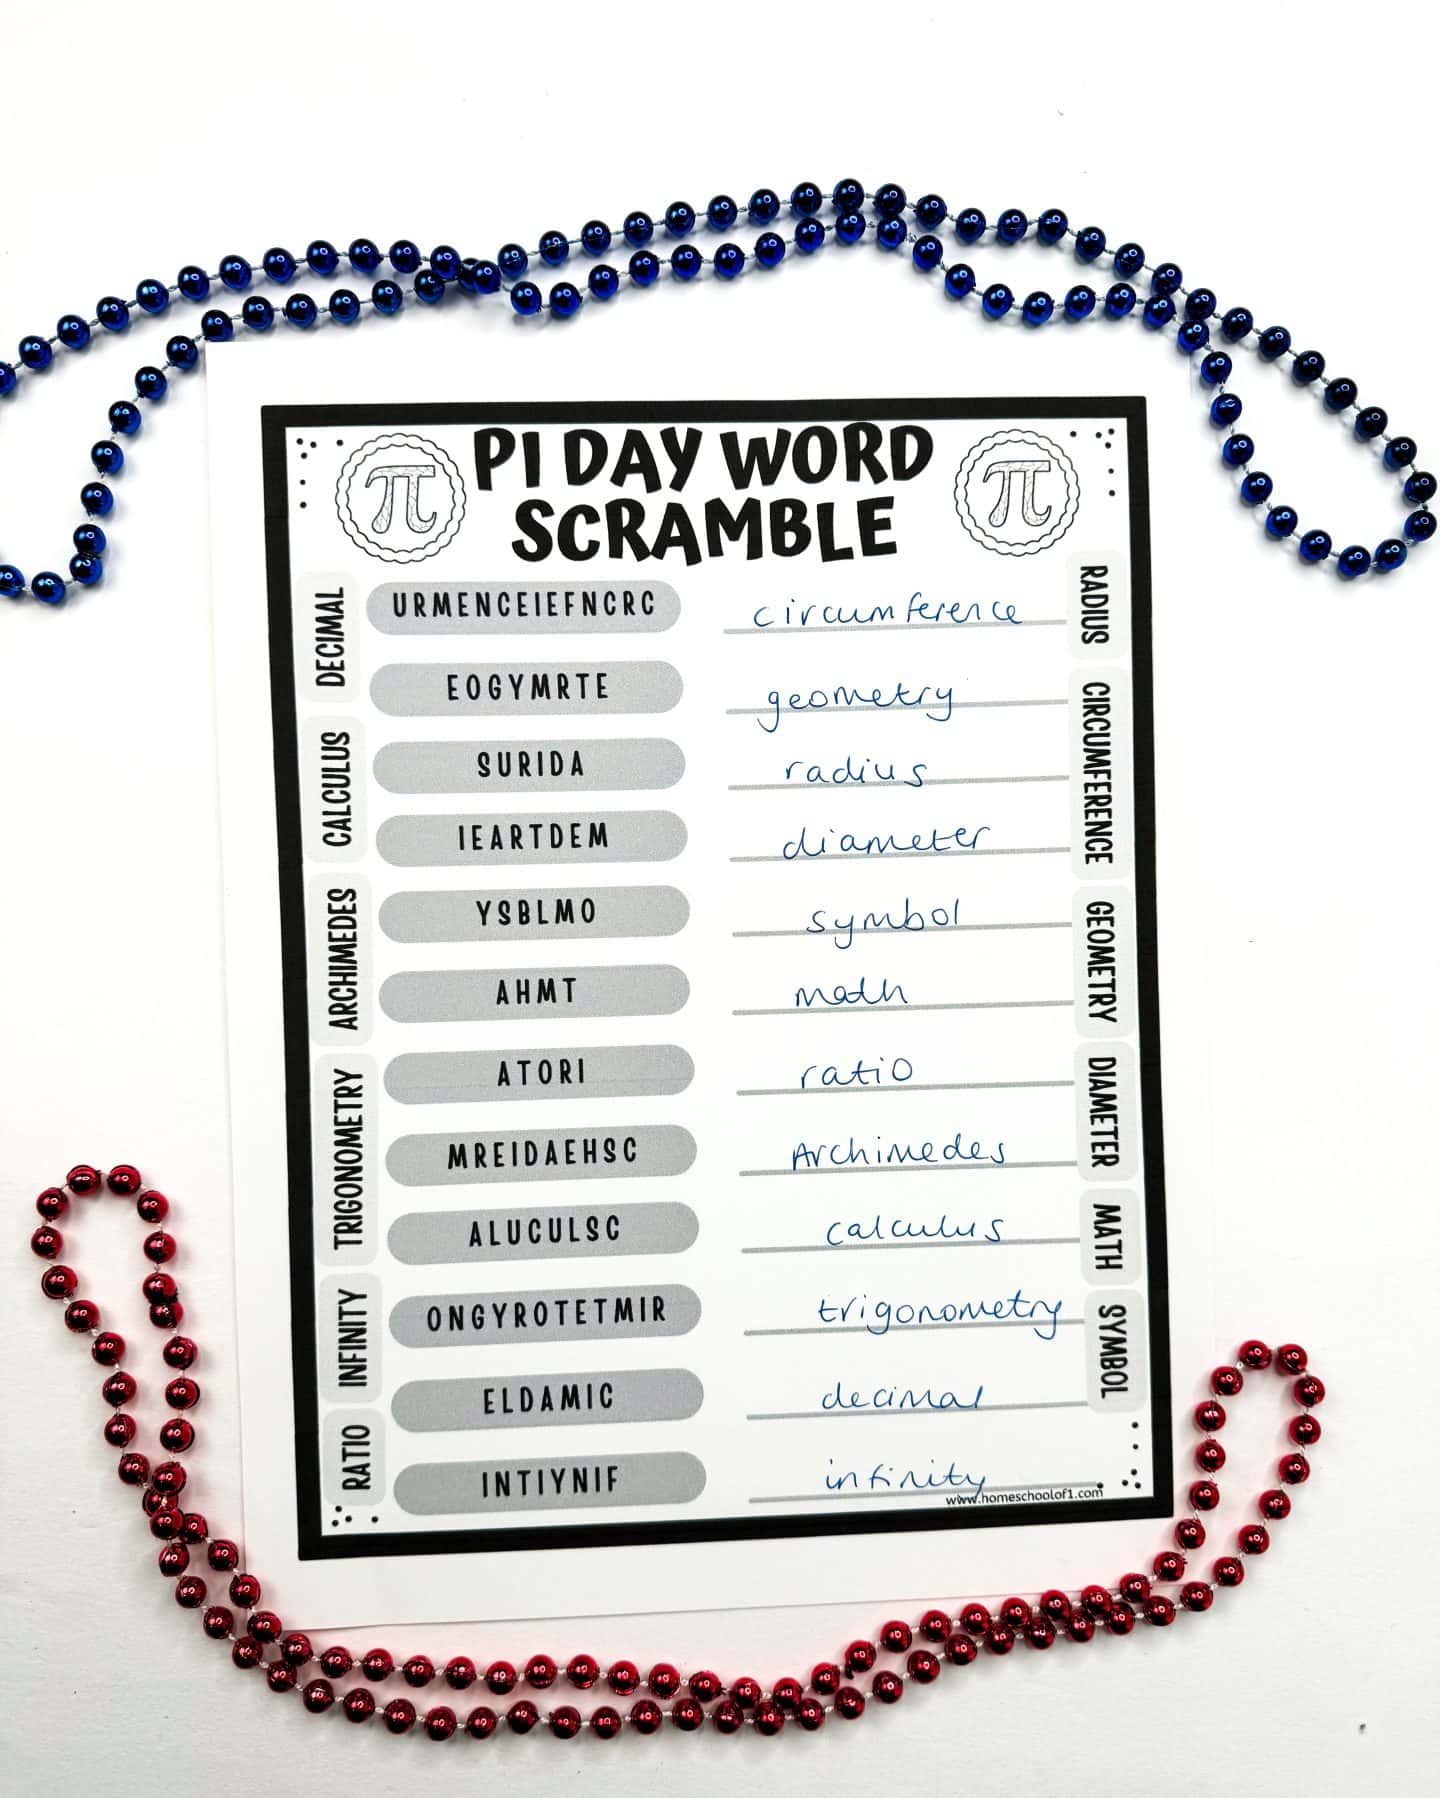 PI DAY WORD
SCRAMBLE
DECIMAL
CALCULUS
ARCHIMEDES
TRIGONOMETRY
INFINITY
RATIO
URMENCEIEFNCRC circumference
EOGYMRTE geometry
SURIDA radius
IEARTDEM diameter
YSBLMO symbol
AHMT math
ATORI ratio
MREIDAEHSC Archimedes
ALUCULSC calculus
ONGYROTETMIR trigonometry
ELDAMIC decimal
INTIYNIF infinity
www.homeschoolof1.com
RADIUS
CIRCUMFERENCE
GEOMETRY
DIAMETER
MATH
SYMBOL
π
π